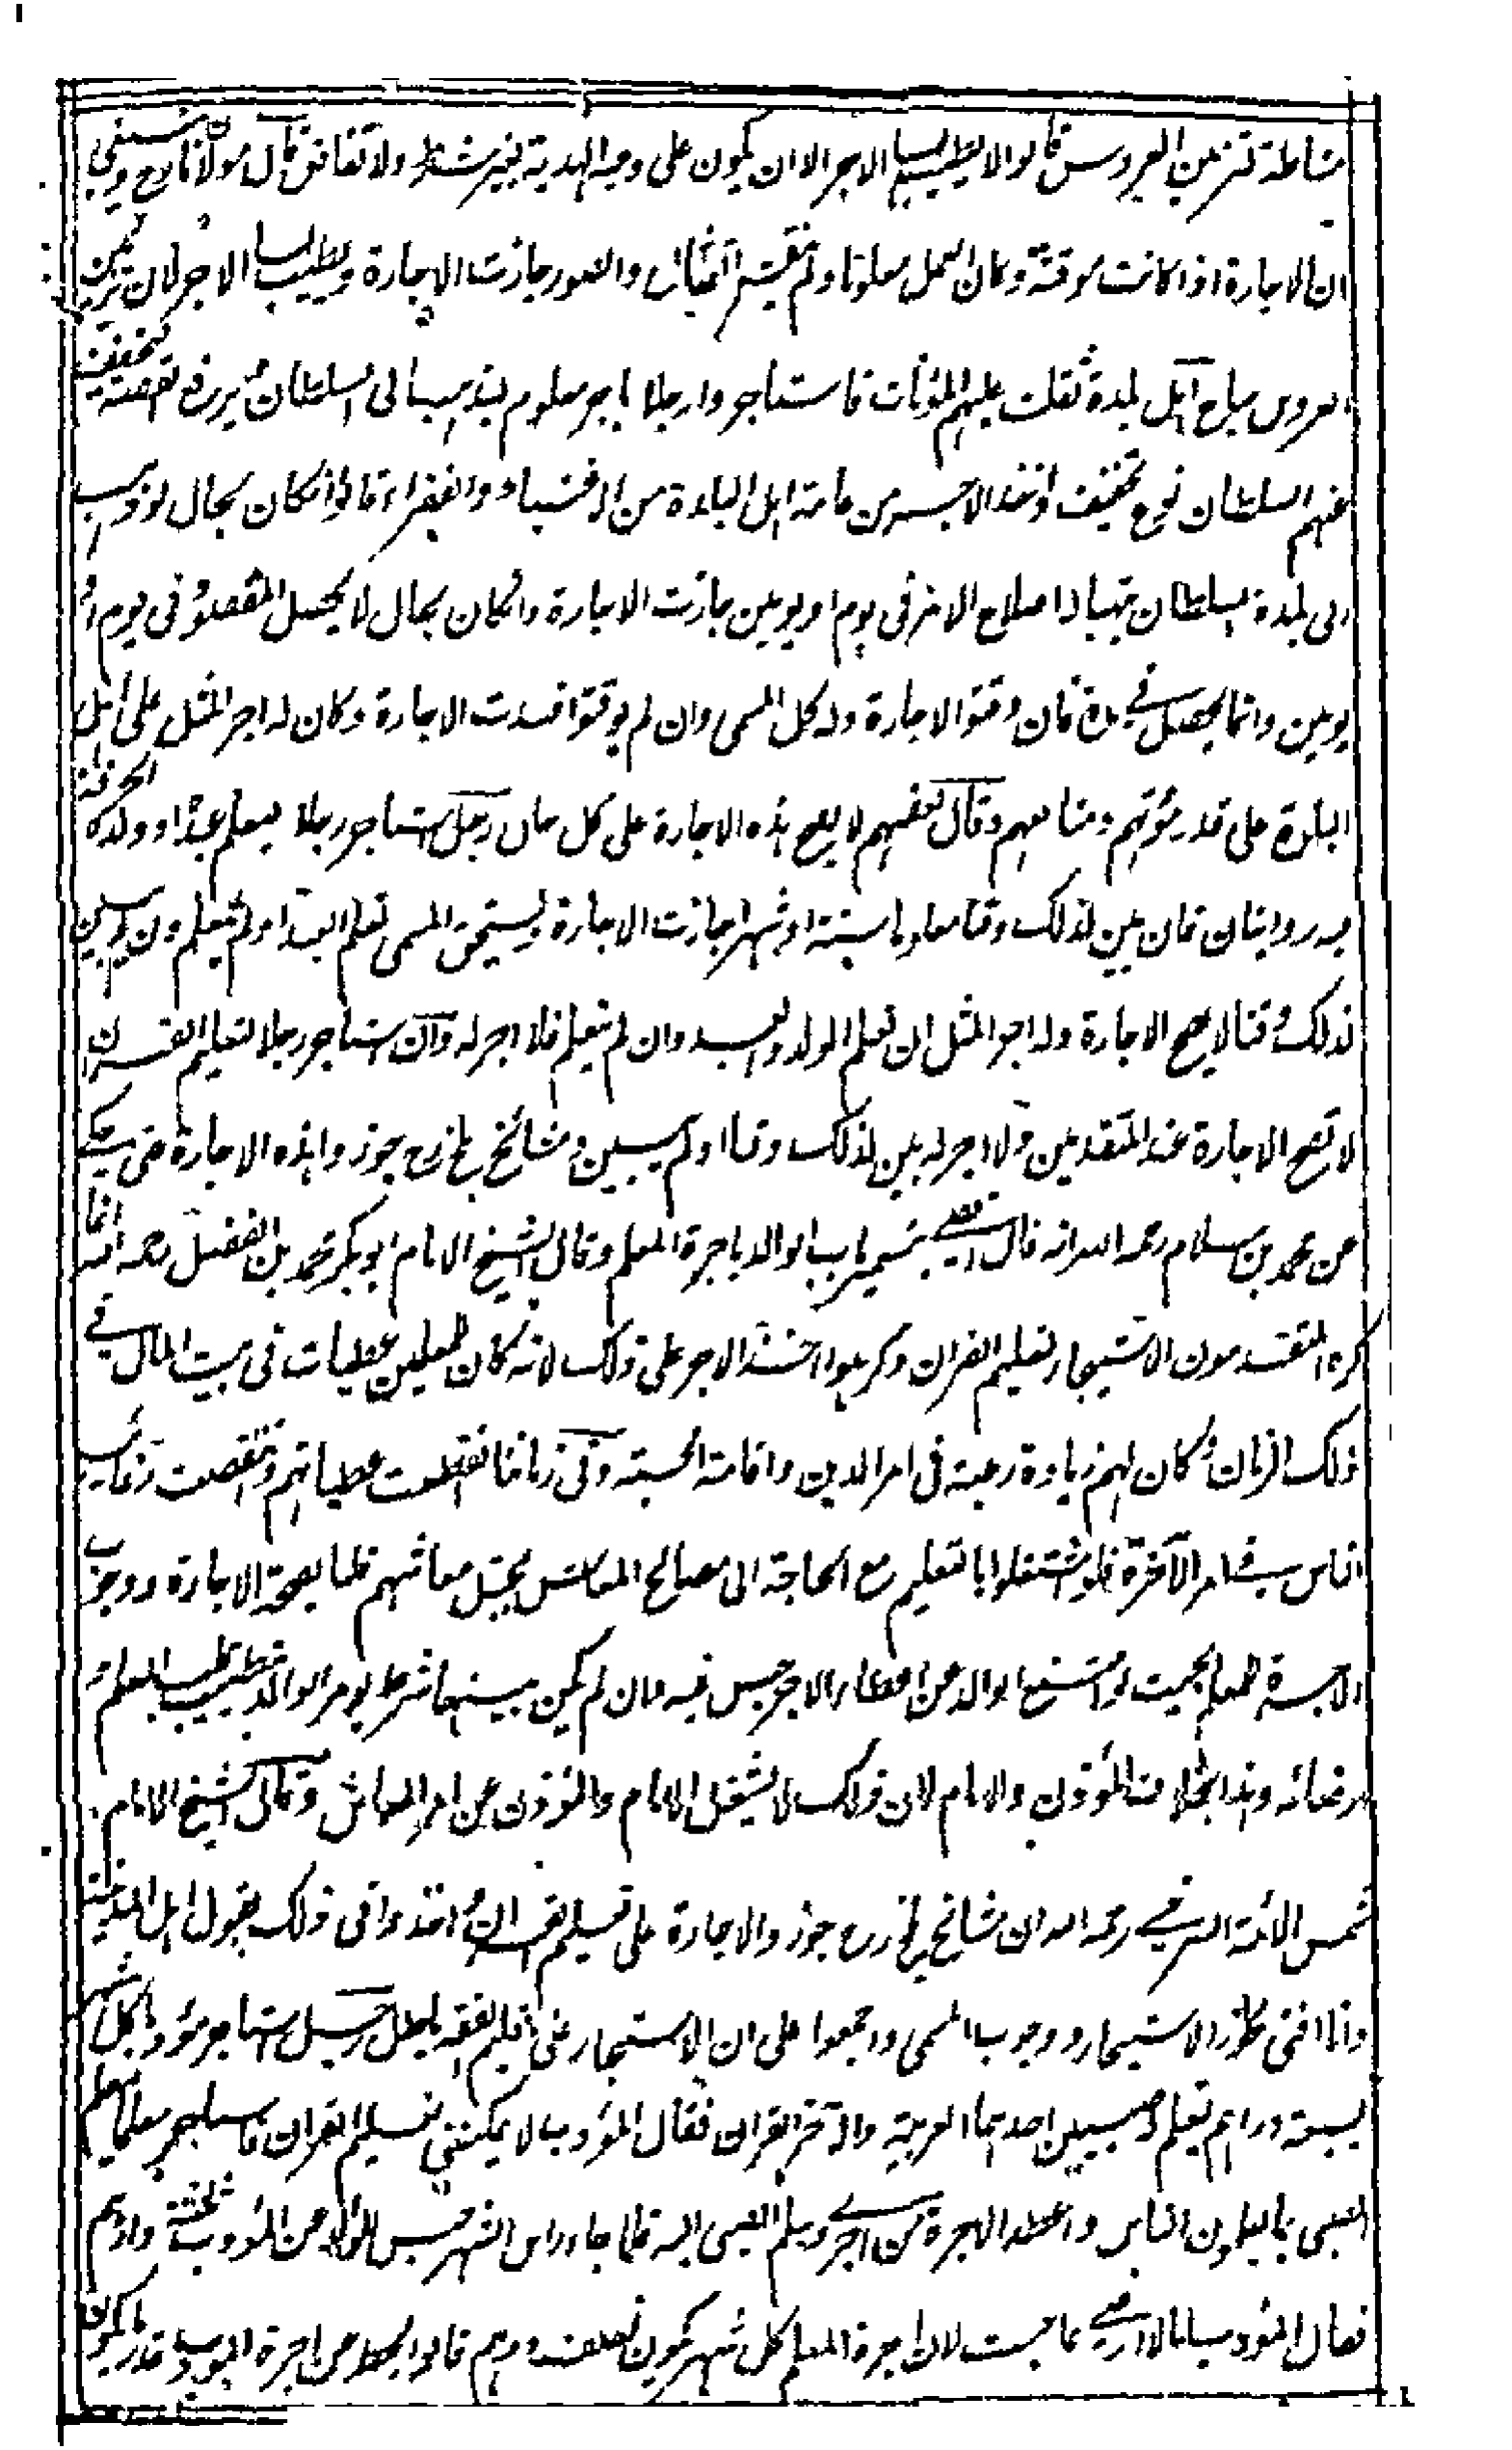 مشاطة تزين العروس قالوا لا يطيب لها الاجر الا ان يكون على وجه الهدية بغير شرط ولا تقاض قال مولانا رح وينبغي
ان الاجارة اذا كانت موقتة وكان العمل معلوما ولم ينقش التماثيل والصور جازت الاجارة ويطيب لها الاجر لان تزيين
العروس مباح اهل بلدة ثقلت عليهم المؤنات فاستاجروا رجلا باجر معلوم ليذهب الى السلطان ويرفع القصة ليخفف
عنهم السلطان نوع تخفيف واخذ الاجر من عامة اهل البلدة من الاغنياء والفقراء قالوا ان كان بحال لو ذهب
الى بلدة السلطان يتهيأ له اصلاح الامر في يوم او يومين جازت الاجارة وان كان بحال لا يحصل المقصود في يوم او
يومين وانما يحصل في مدة فان وقتوا الاجارة وله كل المسمى وان لم يوقتوا فسدت الاجارة وكان له اجر المثل على اهل
البلدة على قدر مؤنتهم ومنافعهم وقال بعضهم لا يصح هذه الاجارة على كل حال رجل استاجر رجلا ليعلم عبده او ولده الحرفة
فيه روايتان فان بين لذلك وقتا معلوما سنة او شهرا جازت الاجارة ويستحق المسمى تعلم العبد او لم يتعلم وان لم يبين
لذلك وقتا لا يصح الاجارة وله اجر المثل ان تعلم الولد والعبد وان لم يتعلم فلا اجر له وان استاجر رجلا لتعليم القران
لا تصح الاجارة عند المتقدمين ولا اجر له بين لذلك وقتا او لم يبين ومشائخ بلخ رح جوزوا هذه الاجارة حتى حكي
عن محمد بن سلام رحمه الله انه قال اقضي بتسمير باب الوالد باجرة المعلم وقال الشيخ الامام ابو بكر محمد بن الفضل رحمه الله انما
كره المتقدمون الاستيجار لتعليم القران وكرهوا اخذ الاجر على ذلك لانه كان للمعلمين عطيات في بيت المال في
ذلك الزمان وكان لهم زيادة رغبة في امر الدين واقامة الحسبة وفي زماننا انقطعت عطياتهم وانتقصت رغائب
الناس في امر الآخرة فلو اشتغلوا بالتعليم مع الحاجة الى مصالح المعاش يختل معاشهم قلنا بصحة الاجارة ووجوب
الاجرة للمعلم بحيث لو امتنع الوالد عن اعطاء الاجر حبس فيه وان لم يكن بينهما شرط يؤمر الوالد بتطييب قلب المعلم و
ارضائه وهذا بخلاف المؤذن والامام لان ذلك لا يشغل الامام والمؤذن عن امر المعاش وقال الشيخ الامام
شمس الائمة السرخسي رحمه الله ان مشائخ بلخ رح جوزوا الاجارة على تعليم القران واخذوا في ذلك بقول اهل المدينة
وانا افتي بجواز الاستيجار ووجوب المسمى واجمعوا على ان الاستيجار على تعليم الفقه باطل رجل استاجر مؤدبا كل شهر
بسبعة دراهم ليعلم صبيين احدهما العربية والآخر القران فقال المؤدب لا يمكنني تعليم القران فاستاجر معلما يعلم
الصبي ما يعلمون الناس واعطه الاجرة من اجري وسلم الصبي اليه فلما جاء راس الشهر حبس الوالد من المؤدب ثلثة دراهم
فقال المؤدب انا لا ارضى بما حبست لان اجرة المعلم كل شهر يكون نصف درهم قالوا يحط من اجرة المؤدب قدر ما يكون